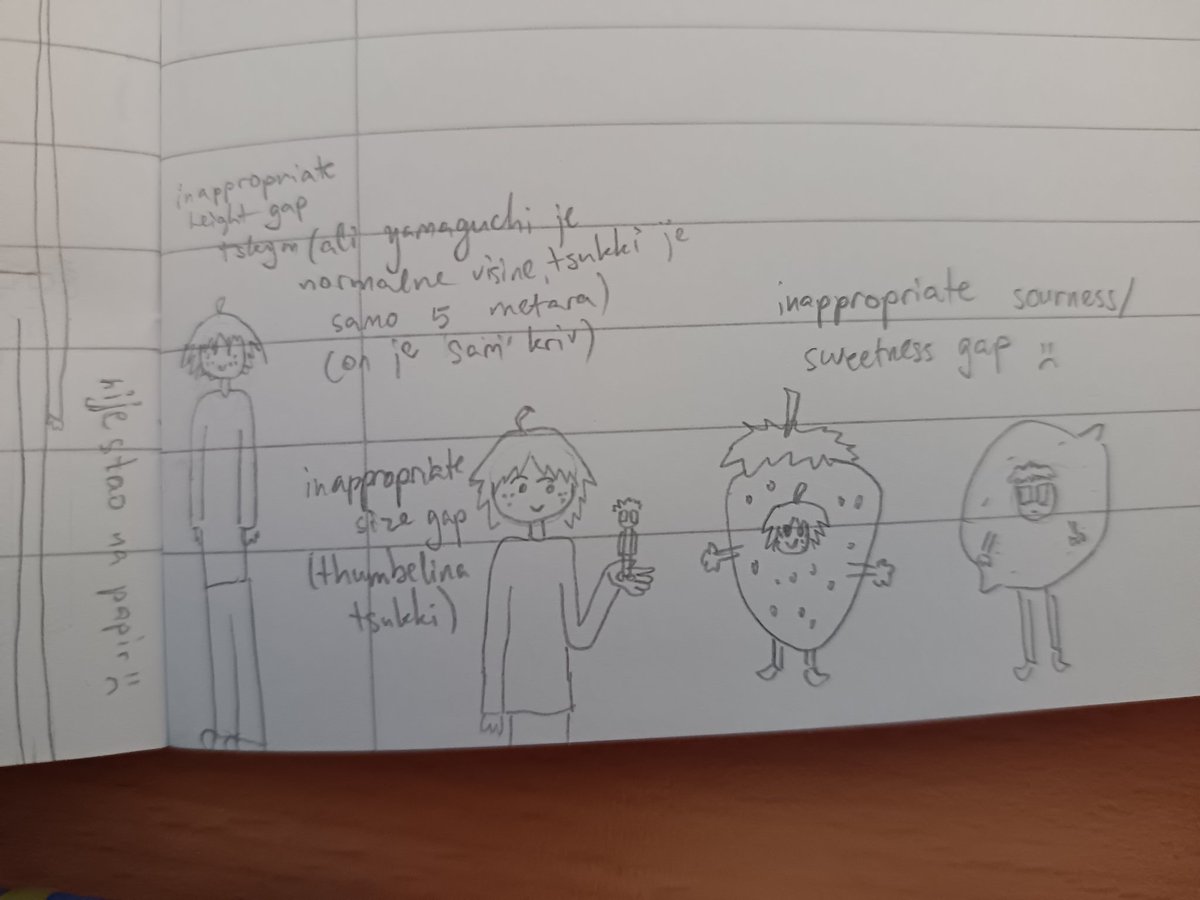 inappropriate
height gap
tskym (ali yamaguchi je
normalne visine, tsukki je
samo 5 metara)
(on je sam kriv)
nije stao na papir :(
inappropriate
size gap
(thumbelina
tsukki)
inappropriate sourness/
sweetness gap :(